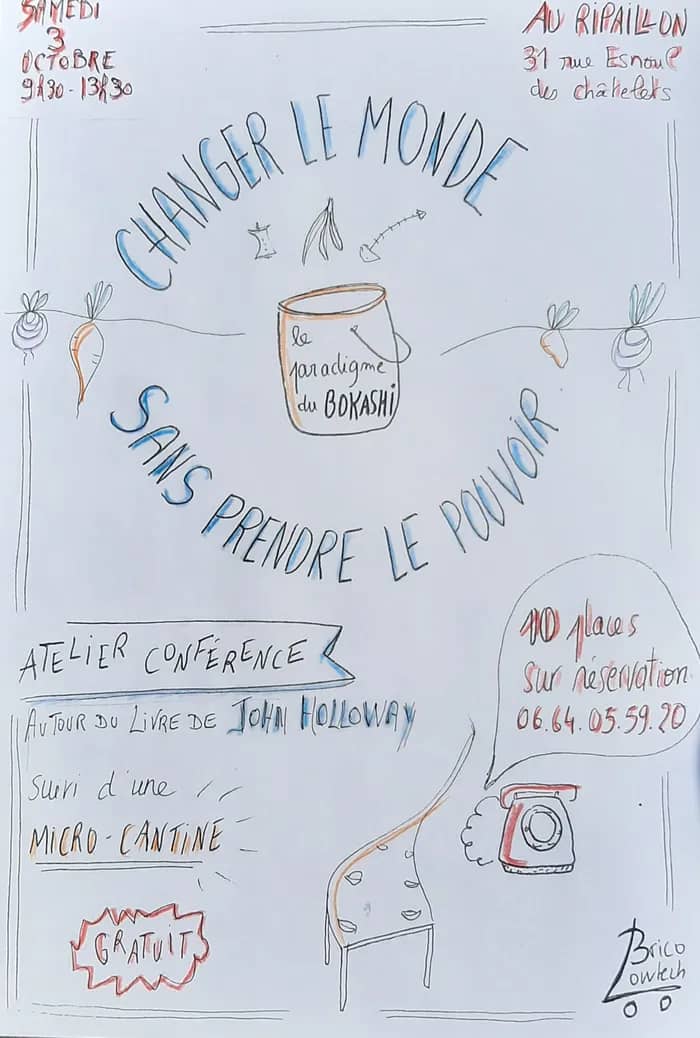 SAMEDI
3
OCTOBRE
9h30 - 13h30
AU RIPAILLON
31 rue Esnoul
des châtelets
CHANGER LE MONDE
le
paradigme
du BOKASHI
SANS PRENDRE LE POUVOIR
ATELIER CONFÉRENCE
AUTOUR DU LIVRE DE JOHN HOLLOWAY
suivi d'une
MICRO-CANTINE
GRATUIT
10 places
sur réservation
06.64.05.59.20
Brico
Lowtech